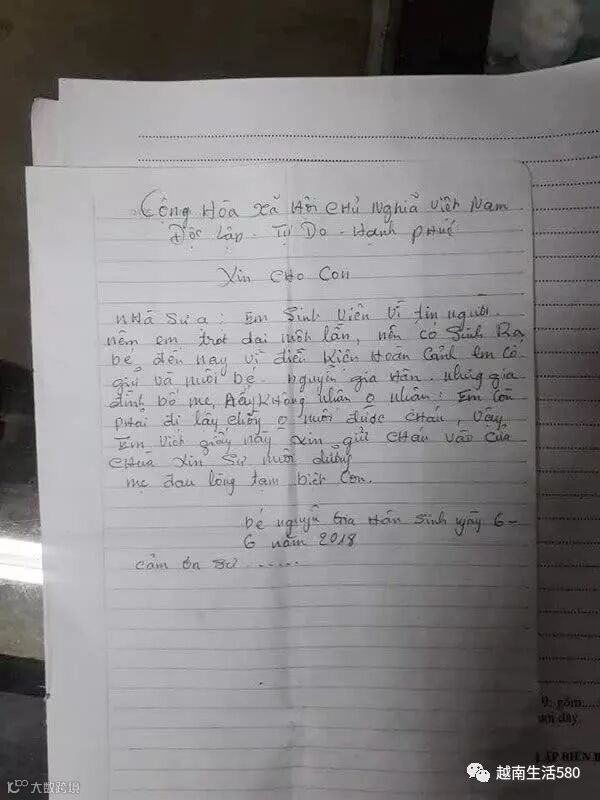 Cộng Hòa Xã Hội Chủ Nghĩa Việt Nam
Độc Lập - Tự Do - Hạnh Phúc
Xin Cho Con
nhà sư ạ: Em Sinh Viên Vì tin người.
nên em trót dại một lần, nên có Sinh Ra
bé đến nay vì điều Kiện Hoàn Cảnh Em Có
giữ và nuôi bé. nguyễn gia Hân. nhưng gia
đình bố mẹ, Không nhân o nhân: Em Còn
phải đi lấy chồng o nuôi được cháu, Vậy
Em Viết giấy này xin gửi cháu vào Của
CHùa Xin Sư nuôi dưỡng
mẹ đau lòng tạm biệt Con.
bé nguyễn Gia Hân Sinh ngày 6-
6 năm 2018
cảm ơn sư ......
9: gồm....
ười đây.
LẬP BIÊN B
大数跨境
越南生活580